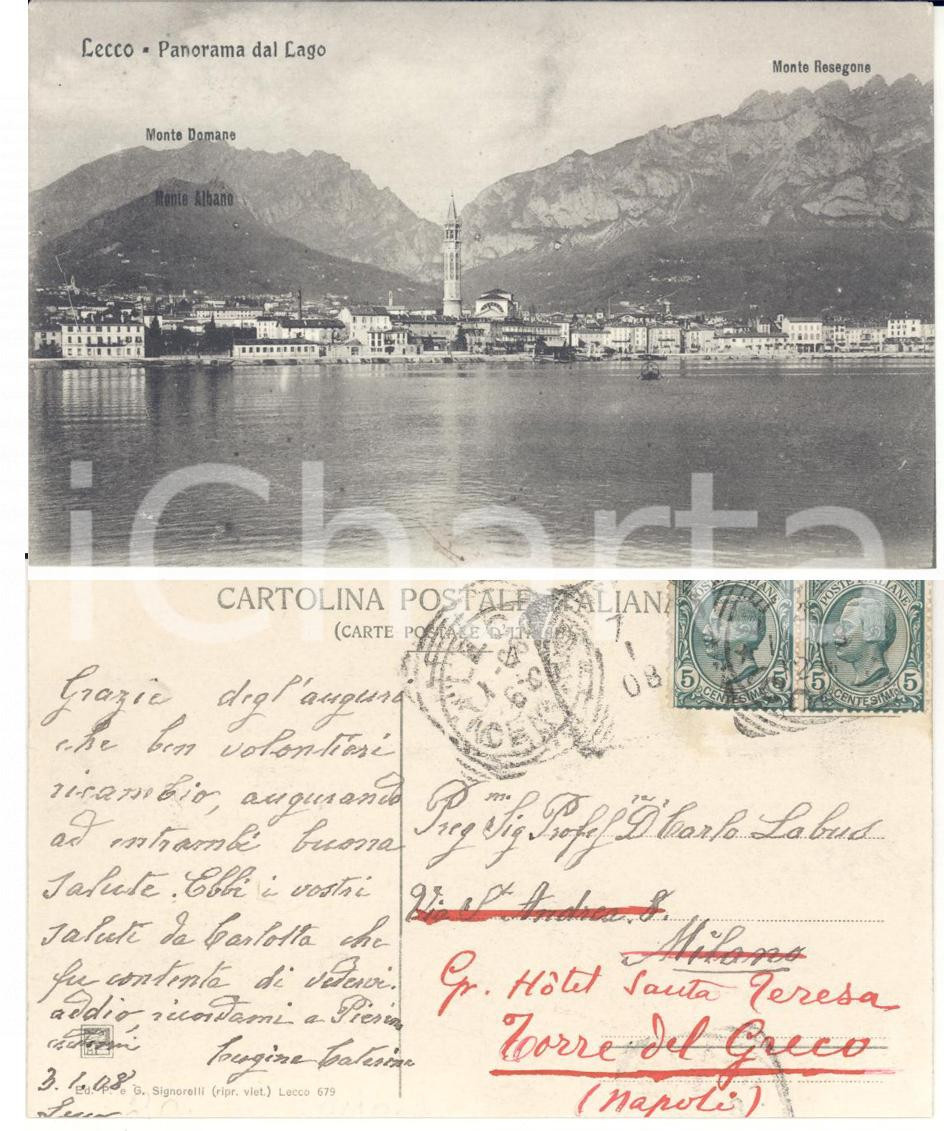 Lecco - Panorama dal Lago
Monte Resegone
Monte Domane
Monte Albano
iCharta
CARTOLINA POSTALE ITALIANA
(CARTE POSTALE D'ITALIE)
POSTE ITALIANE
POSTE ITALIANE
5 CENTESIMI 5
5 CENTESIMI 5
7
1
08
Grazie degl'auguri
che ben volontieri
ricambio, augurando
ad entrambi buona
salute. Ebbi i vostri
saluti da Carlotta che
fu contenta di vedervi.
addio ricordami a
Cugina Caterina
3.1.08
Preg.m Sig Prof D.r Carlo Labus
Via S.t Andrea
Milano
Gr. Hôtel Santa Teresa
Torre del Greco
(Napoli)
Ed. P. e G. Signorelli (ripr. viet.) Lecco 679